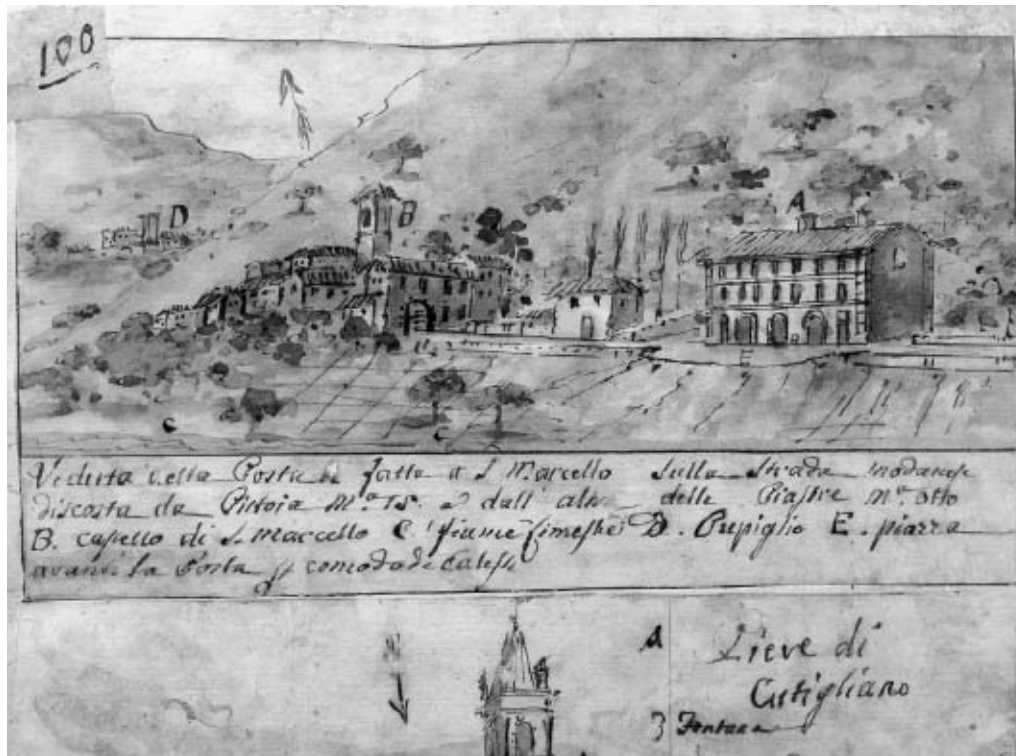 100
A
B
D
E
C
C
Veduta della Posta fatta a S Marcello Sulla Strada modanese
discosta da Pistoia M.a 15. e dall' altra delle Piastre M.a otto
B. castello di S. Marcello C. fiume D. Pupiglio E. piazza
avanti la Posta comoda di
A Pieve di
Cutigliano
3 Fontana